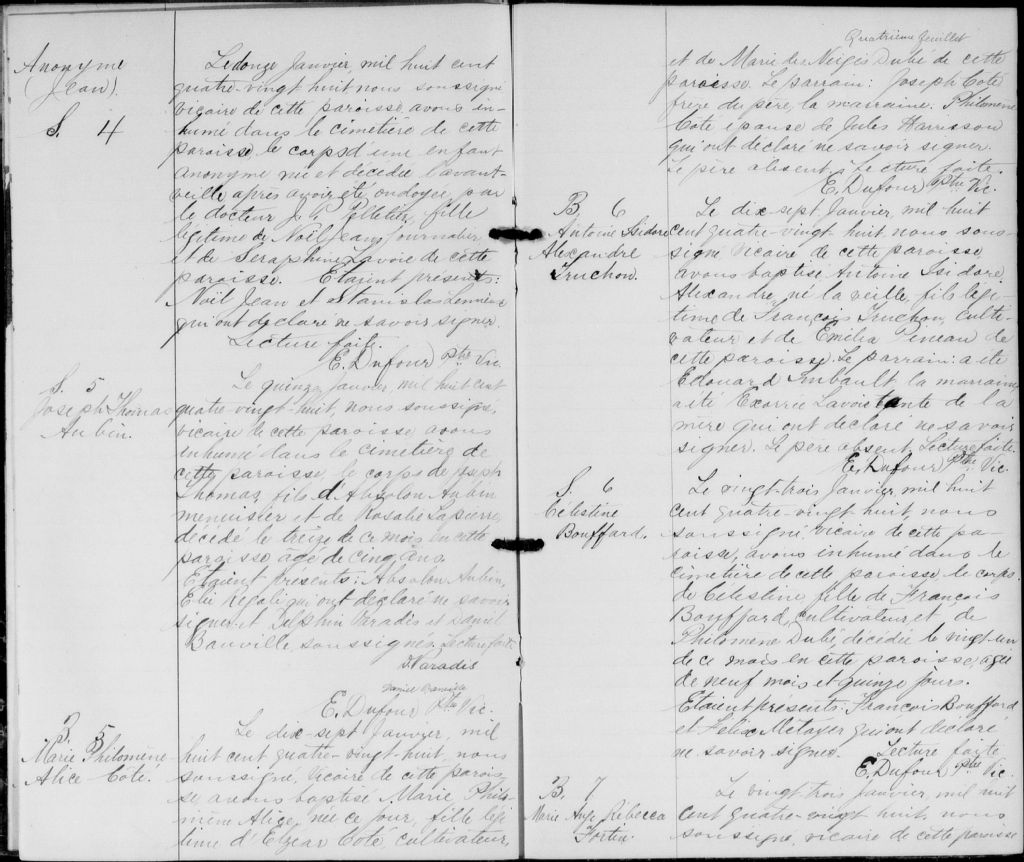 Anonyme
(Jean)
S. 4
Le douze Janvier, mil huit cent
quatre-vingt huit nous soussigné
vicaire de cette paroisse avons in-
humé dans le cimetière de cette
paroisse, le corps d'une enfant
anonyme née et décédée l'avant-
veille après avoir été ondoyée, par
le docteur J. P. Pelletier, fille
légitime de Noël Jean, journalier
et de Seraphine Lavoie de cette
paroisse. Etaient présents:
Noël Jean et Stanislas Lemieux
qui ont déclaré ne savoir signer.
Lecture faite.
E. Dufour Ptre Vic.
S. 5
Joseph Thomas
Aubin.
Le quinze Janvier, mil huit cent
quatre-vingt-huit, nous soussigné,
vicaire de cette paroisse avons
inhumé dans le cimetière de
cette paroisse, le corps de Joseph
Thomas, fils d'Absolon Aubin
menuisier et de Rosalie Lapierre,
décédé le treize de ce mois en cette
paroisse agé de cinq ans
Etaient presents: Absolon Aubin,
Elie qui ont declaré ne savoir
signer et Delphin Paradis et Daniel
Banville, soussignés, Lecture faite
D Paradis
Daniel Banville
E. Dufour Ptre Vic.
B. 5
Marie Philomène
Alice Coté.
Le dix-sept Janvier, mil
huit cent quatre-vingt-huit, nous
soussigné, Vicaire de cette parois-
se avons baptisé Marie Philo-
mène Alice, née ce jour, fille légi-
time d'Elzear Coté, cultivateur,
Quatrième feuillet
et de Marie des Neiges Dubé de cette
paroisse. Le parrain: Joseph Coté
frere du père, la marraine: Philomène
Coté épouse de Jules Harrisson
qui ont déclaré ne savoir signer.
Le père absent, Lecture faite.
E. Dufour Ptre Vic.
B 6
Antoine Isidore
Alexandre
Truchon.
Le dix-sept Janvier, mil huit
cent quatre-vingt huit, nous sous-
signé Vicaire de cette paroisse
avons baptisé Antoine Isidore
Alexandre, né la veille, fils légi-
time de François Truchon, culti-
vateur et de Emélia Pineau de
cette paroisse. Le parrain: a été
Edouard Imbault la marraine
a été Lavoie tante de la
mère qui ont déclaré ne savoir
signer. Le père absent, Lecture faite.
E. Dufour Ptre Vic.
S. 6
Célestine
Bouffard.
Le vingt-trois Janvier, mil huit
cent quatre-vingt huit, nous
soussigné, vicaire de cette pa-
roisse, avons inhumé dans le
cimetière de cette paroisse le corps
de Célestine fille de François
Bouffard, cultivateur, et de
Philomène Dubé, décédée le vingt-un
de ce mois en cette paroisse, agée
de neuf mois et quinze jours.
Etaient presents: François Bouffard
et Felix Metayer qui ont déclaré
ne savoir signer. Lecture faite
E. Dufour Ptre Vic.
B. 7
Marie Ange Rébecca
Fortin
Le vingt trois Janvier, mil huit
cent quatre-vingt huit, nous
soussigné, vicaire de cette paroisse